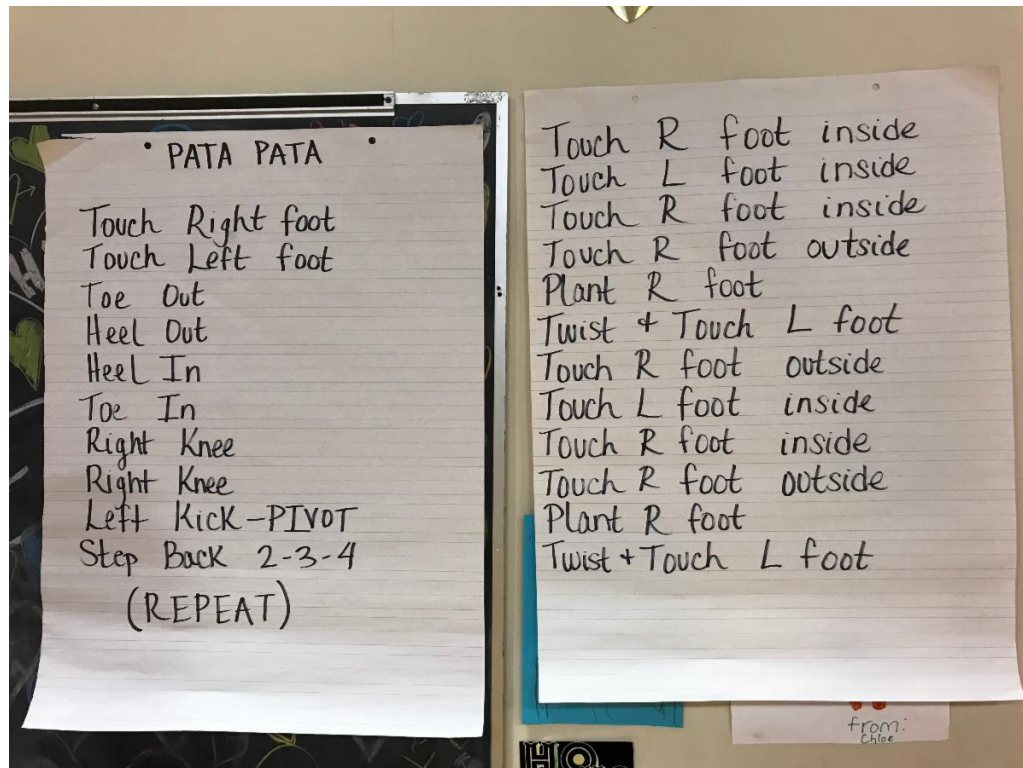 PATA PATA
Touch Right foot
Touch Left foot
Toe Out
Heel Out
Heel In
Toe In
Right Knee
Right Knee
Left Kick-PIVOT
Step Back 2-3-4
(REPEAT)
Touch R foot inside
Touch L foot inside
Touch R foot inside
Touch R foot outside
Plant R foot
Twist + Touch L foot
Touch R foot outside
Touch L foot inside
Touch R foot inside
Touch R foot outside
Plant R foot
Twist + Touch L foot
from:
Chloe